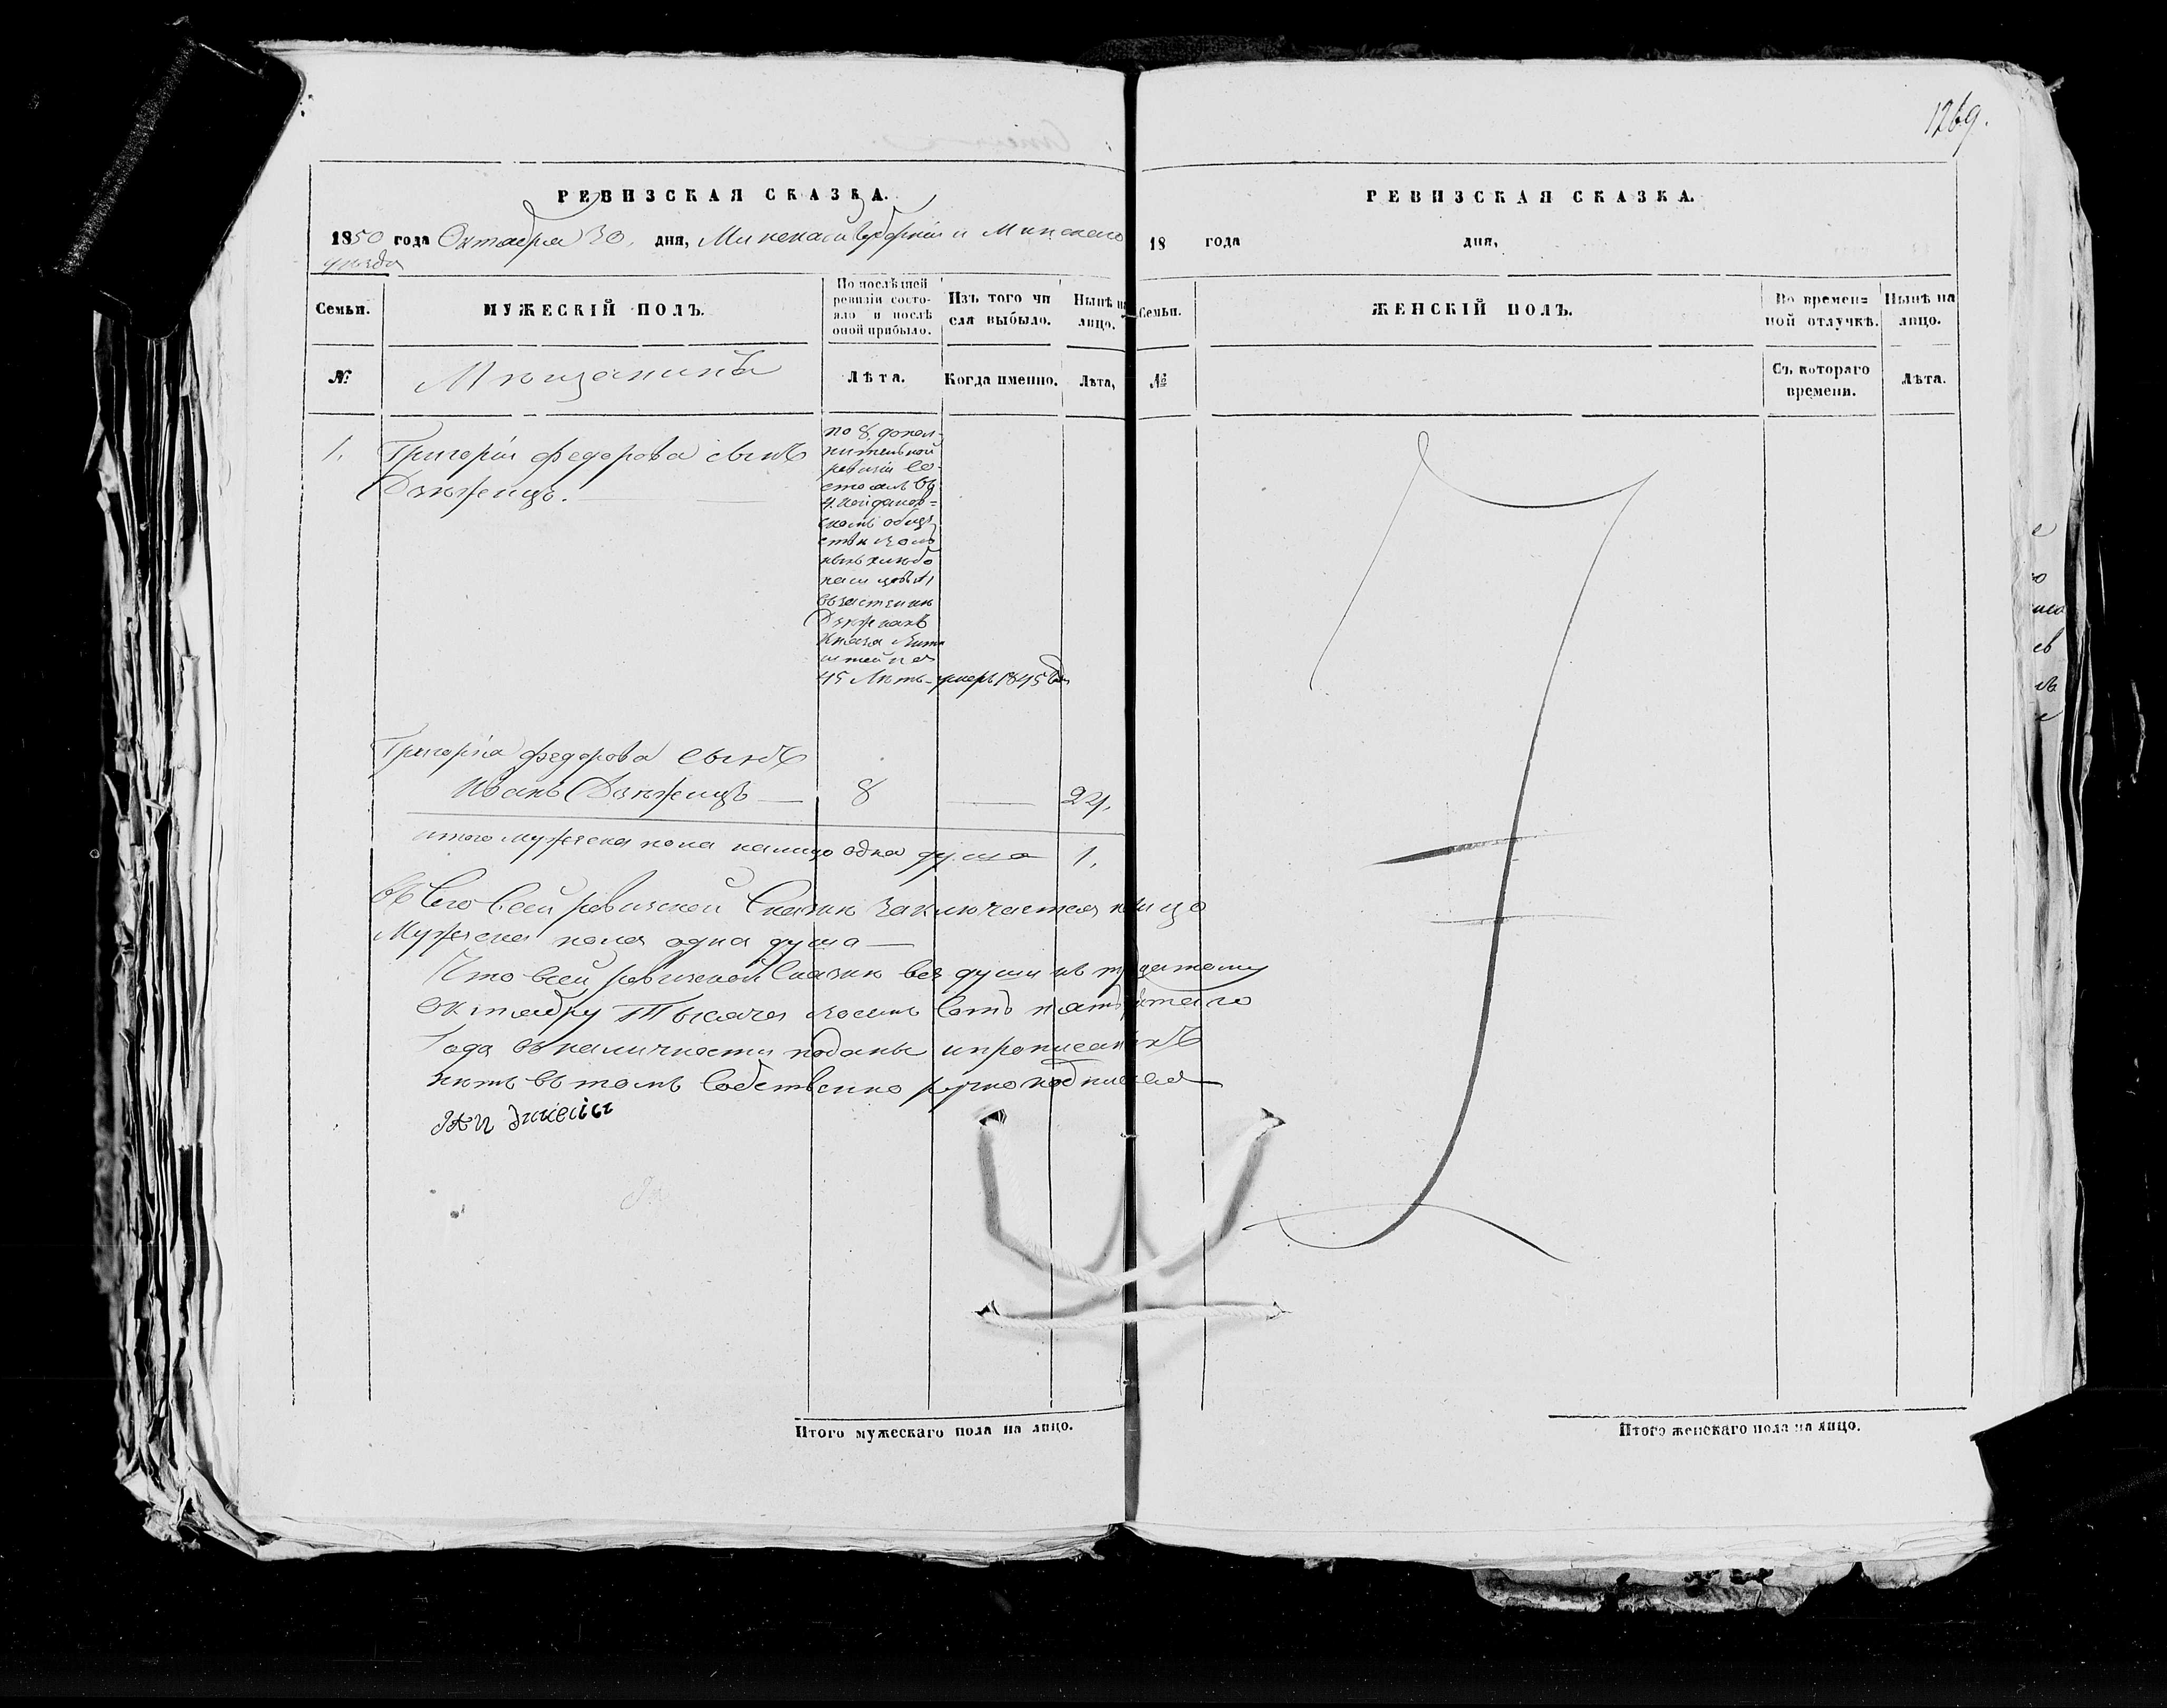 1269.
РЕВИЗСКАЯ СКАЗКА.
1850 года Октября 30, дня, Минской Губерніи и Минскаго
уезда
Семьи.
МУЖЕСКІЙ ПОЛЪ.
По послѣдней
ревизіи состо-
яло и послѣ
оной прибыло.
Изъ того чи
сла выбыло.
Нынѣ на
лицо.
№
Мѣщанинъ
Лѣта.
Когда именно.
Лѣта,
1. Григорій Федоровъ сынъ
по 8 допол-
нительной
ревизіи со-
стоялъ въ
обще
ствѣ воль
ныхъ хлѣбо
въ застенкѣ
Князя
45 Лѣтъ - умеръ 1845 год
Григорія Федорова сынъ
Иванъ — 8 — 24.
итого мужеска пола налицо одна душа 1.
Всего всей ревизской Сказки заключается налицо
Мужеска пола одна душа —
Что всей ревизской Сказки все души къ тридцатому
октябру Тысяча восемь сотъ пятдѣтаго
Года въ наличности поданы и прописанихъ
нѣтъ въ томъ собственно ручно подписался
РЕВИЗСКАЯ СКАЗКА.
18 года дня,
Семьи.
ЖЕНСКІЙ ПОЛЪ.
Во времен=
ной отлучкѣ.
Нынѣ на
лицо.
№
Съ котораго
времени.
Лѣта.
Итого мужескаго пола на лицо.
Итого женскаго пола на лицо.